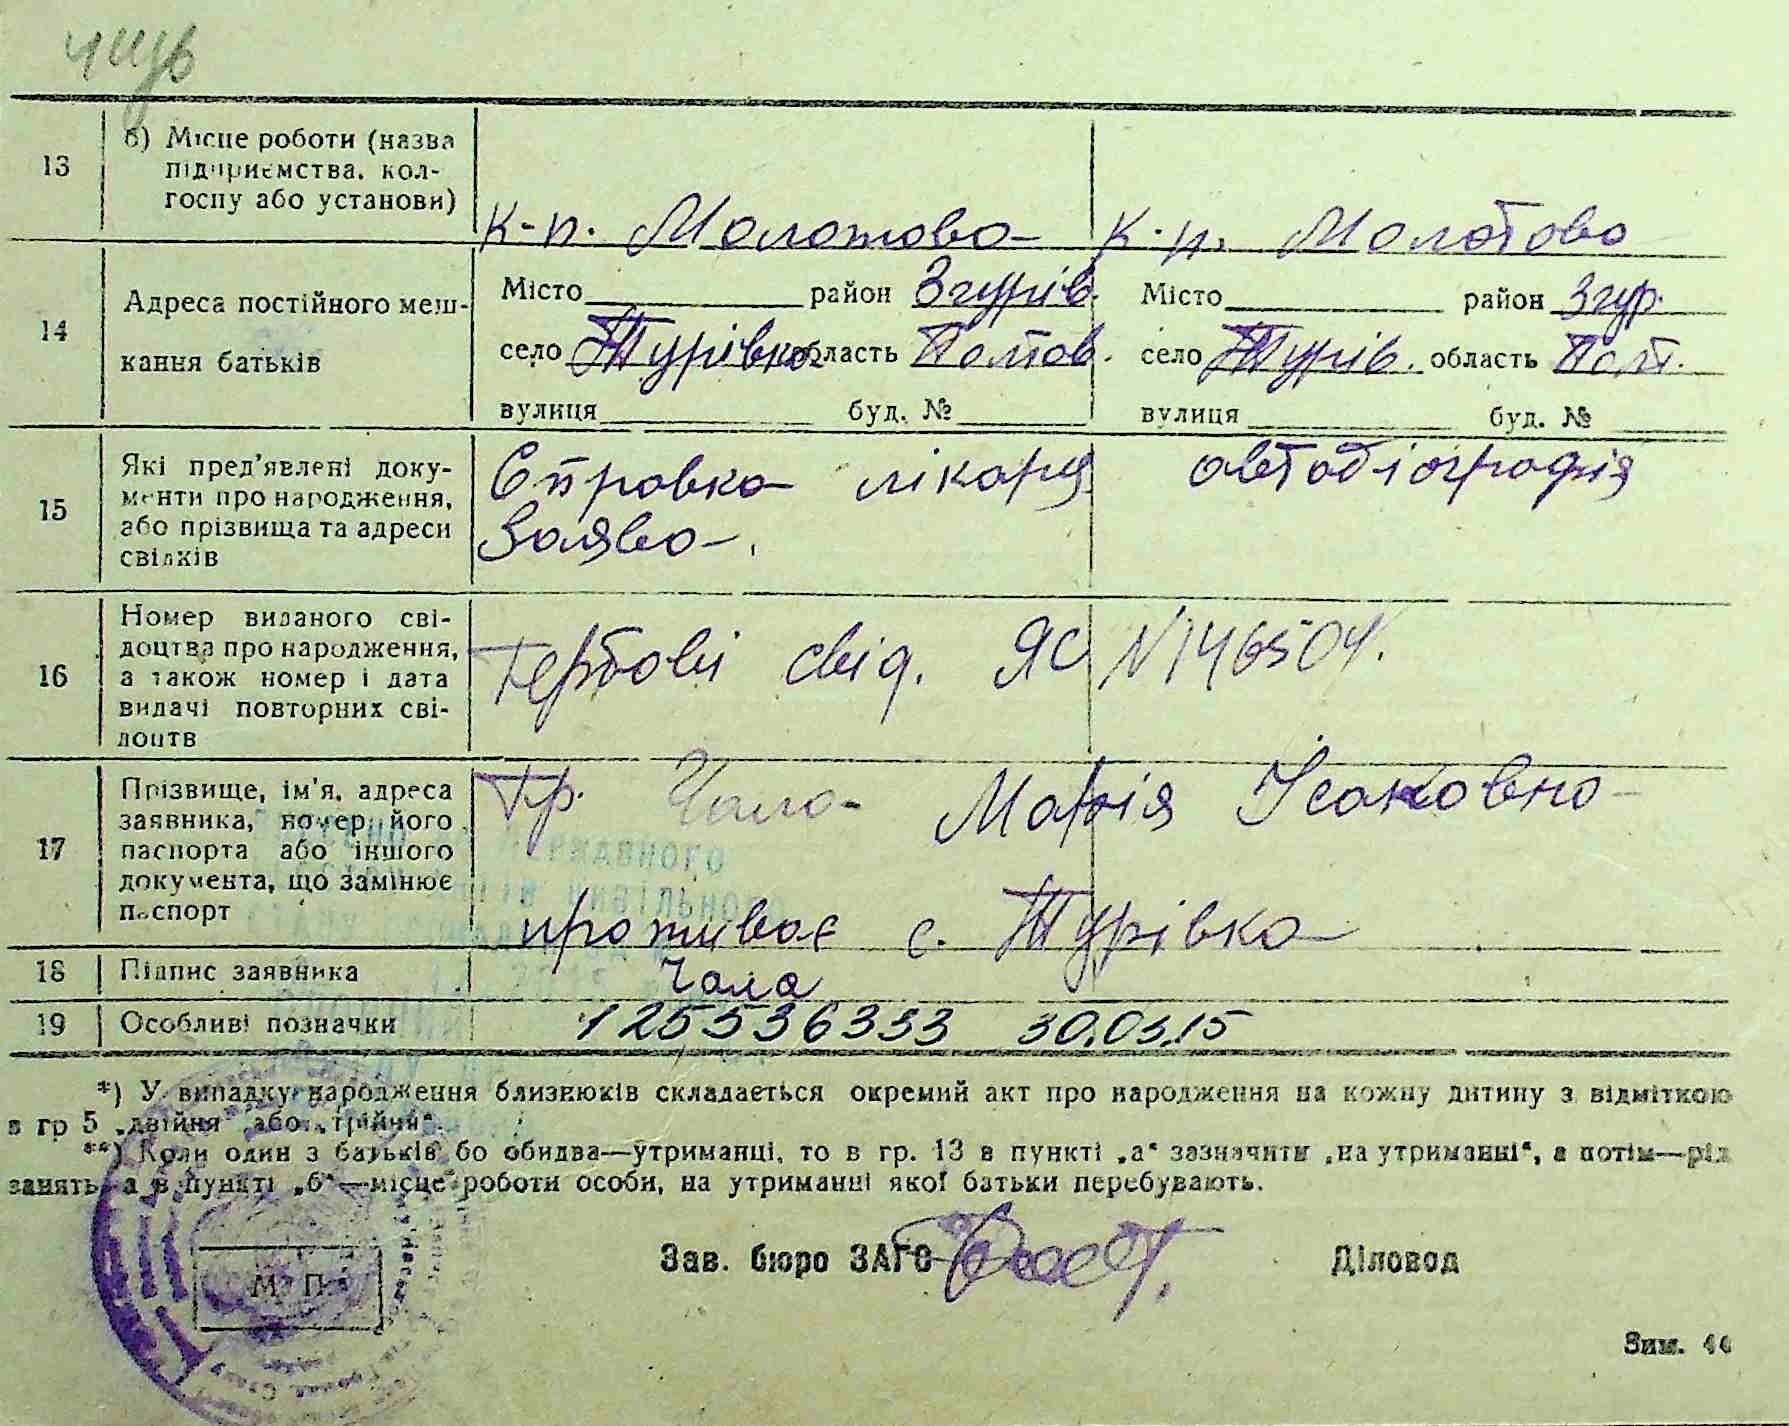 13 б) Місце роботи (назва
підприємства, кол-
госпу або установи)
к-п. Молотова к.п. Молотова
14 Адреса постійного меш-
кання батьків
Місто район Згурів. Місто район Згур.
село Турівка область Полтав. село Турів. область Полт.
вулиця буд. № вулиця буд. №
15 Які пред'явлені доку-
менти про народження,
або прізвища та адреси
свідків
Справка лікаря автобіографія
Заява.
16 Номер виданого сві-
доцтва про народження,
а також номер і дата
видачі повторних сві-
доцтв
Гербові свід. ЯС N146504.
17 Прізвище, ім'я, адреса
заявника, номер його
паспорта або іншого
документа, що замінює
паспорт
Гр. Чала Марія Ісаковна
проживає с. Турівка
18 Підпис заявника Чала
19 Особливі позначки 125536333 30.03.15
*) У випадку народження близнюків складається окремий акт про народження на кожну дитину з відміткою
в гр 5 „двійня" або „трійня".
**) Коли один з батьків бо обидва—утриманці, то в гр. 13 в пункті „а" зазначити „на утриманні", а потім—рід
занять, а в пункті „б"—місце роботи особи, на утриманні якої батьки перебувають.
Зав. бюро ЗАГС Діловод
М. П.
Зим. 44